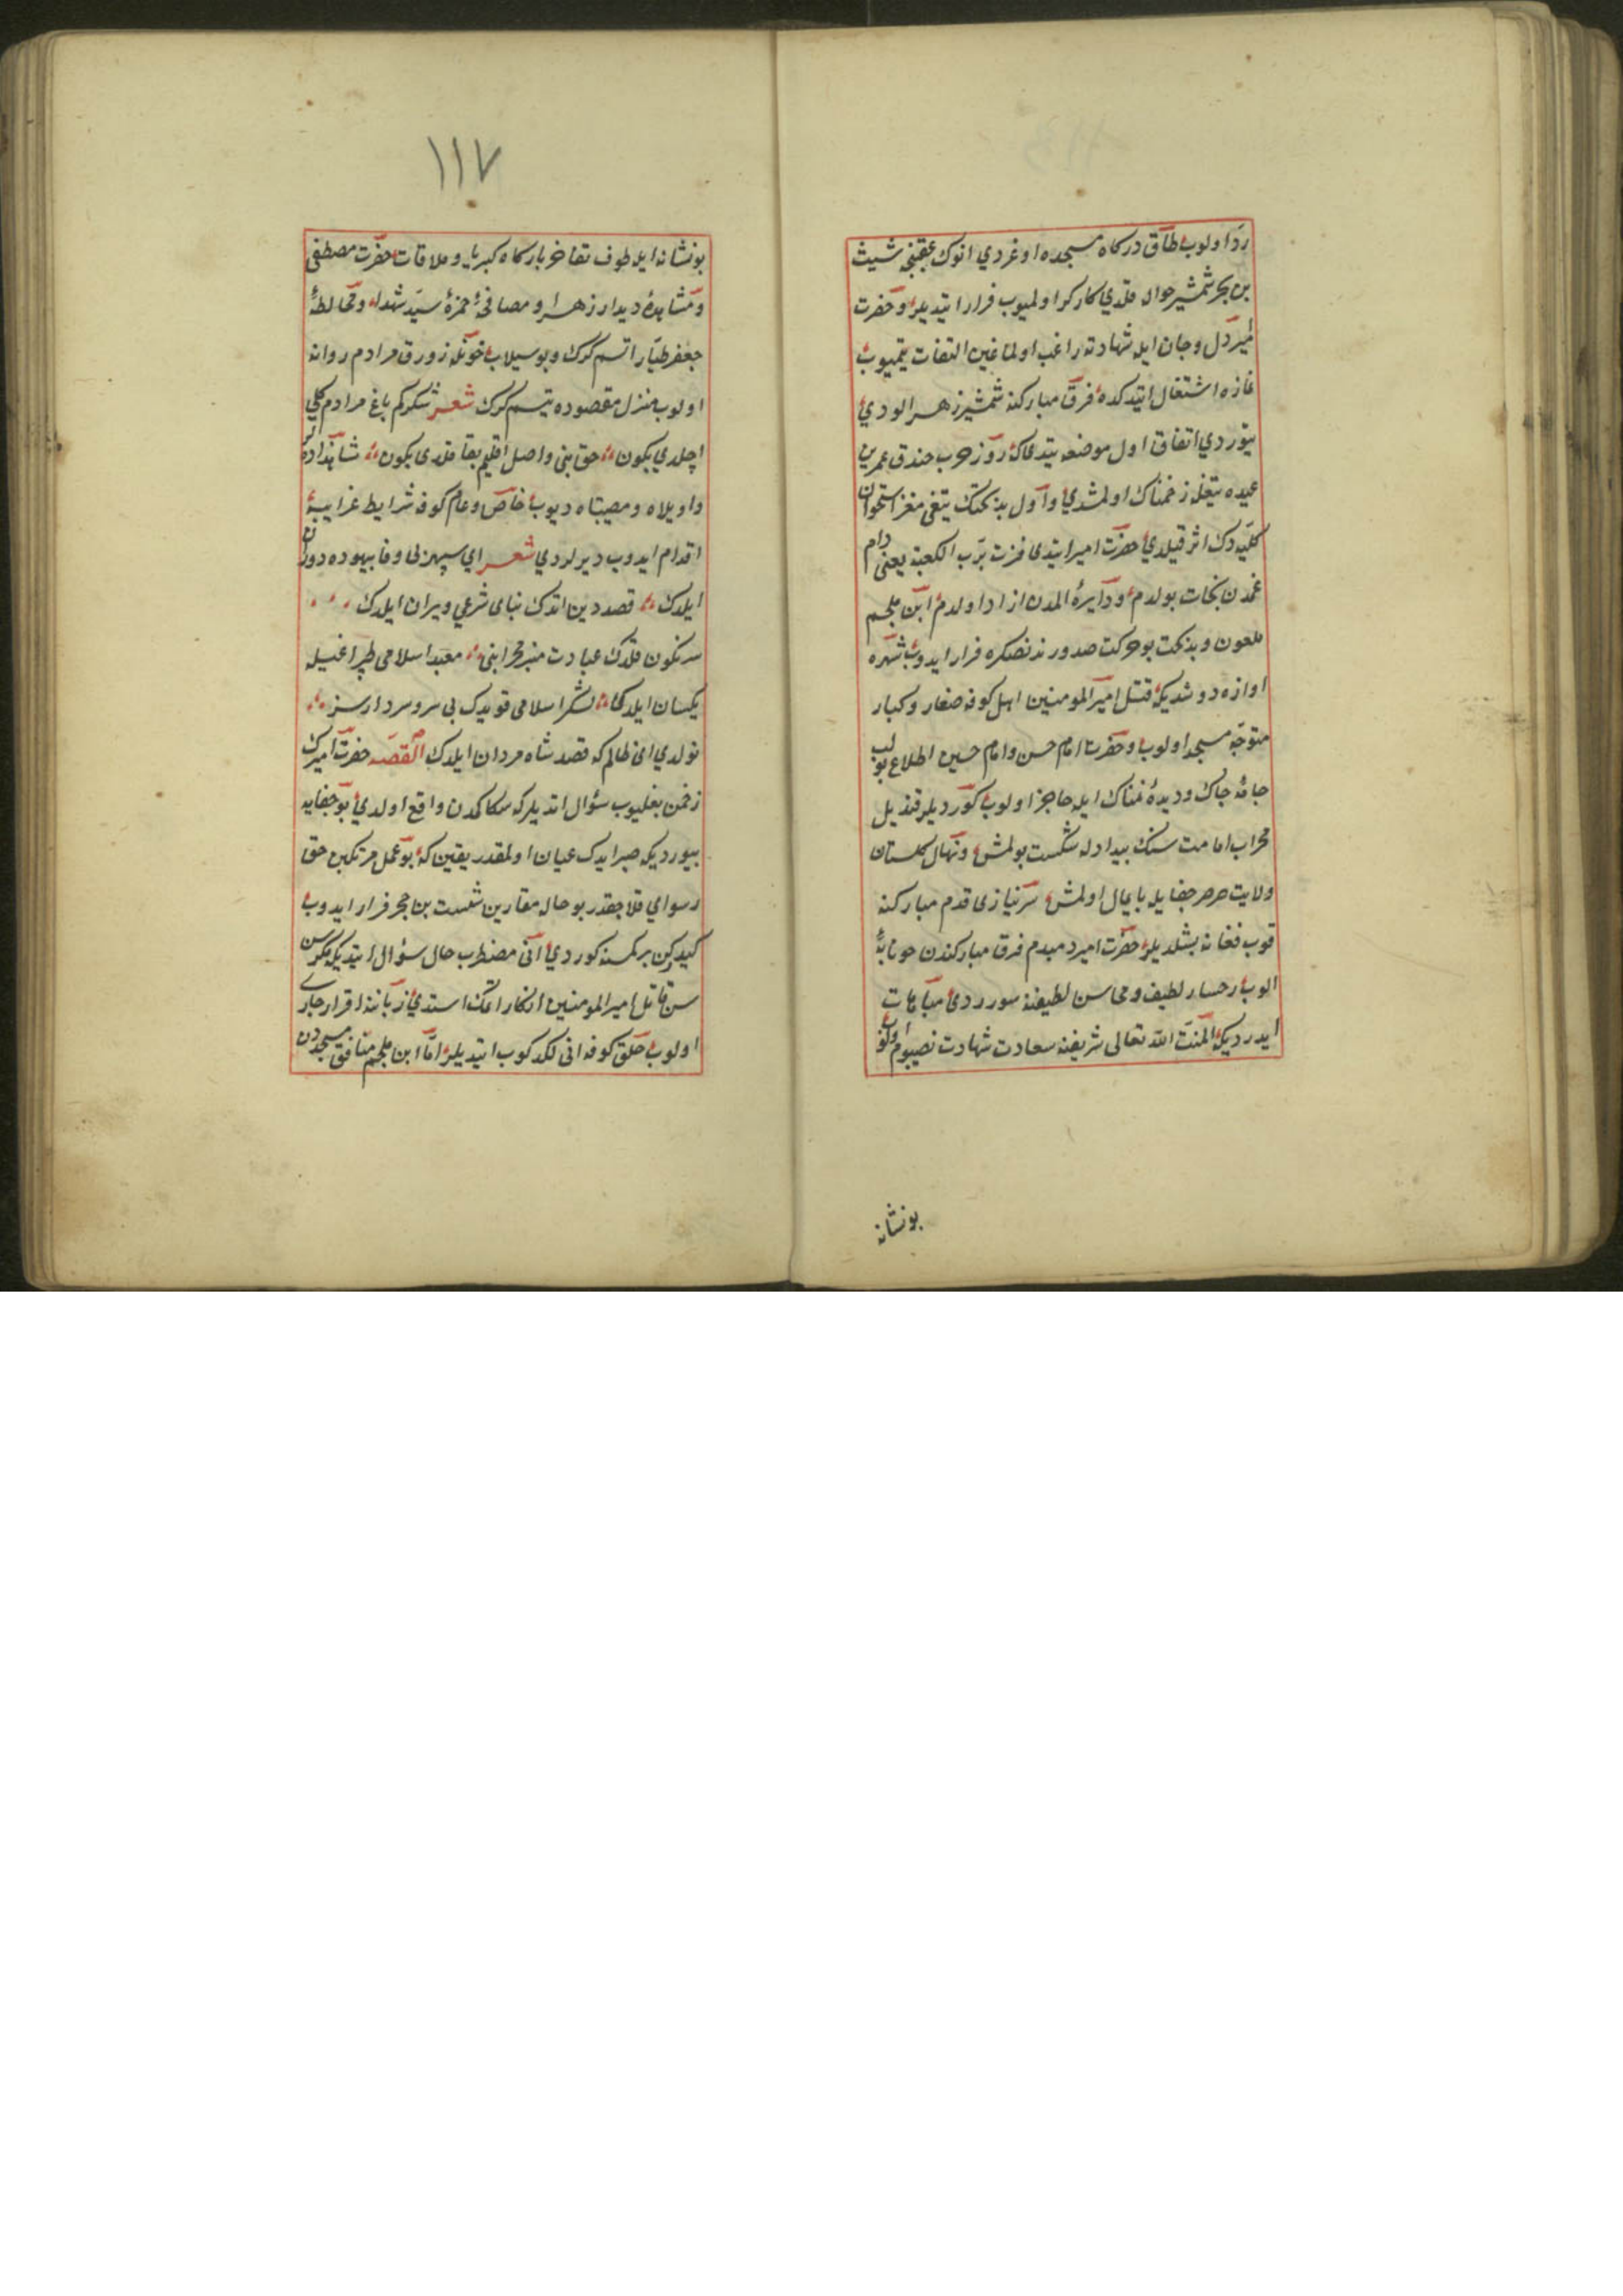 رد اولوب طاق درکاه مسجده اوغردي انوك عقبنجه شیث
بن بجر شمشیر حواله قلدي کارکر اولمیوب فرار ایتدیلر وحضرت
امیر دل وجان ایله شهادته راغب اولماغین التفات یتمیوب
نمازه اشتغال ایتدکده فرق مبارکنه شمشیر زهر الودي
یتوردي اتفاق اول موضعه یتدی که روز حرب خندق عمر بن
عبده تیغله زخمناك اولمشدي واول بدبختك تیغی مغز استخوان
کلیه دك اثر قیلدي حضرت امیر ایتدی فزت برب الکعبة یعنی دام
غمدن نجات بولدم ودایرۀ المدن ازاد اولدم ابن ملجم
ملعون وبدبخت بو حرکت صدورندنصکره فرار ایدوب شهره
اوازه دوشدیکه قتل امیر المومنین اهل کوفه صغار وکبار
متوجه مسجد اولوب وحضرت امام حسن وامام حسین اطلاع بولب
جامۀ چاك ودیدۀ نمناك ایله حاضر اولوب کوردیلر قندیل
محراب امامت سنك بیدادله شکست بولمش ونهال کلستان
ولایت صرصر جفایله پایمال اولمش سر نیازی قدم مبارکنه
قوب فغانه بشلدیلر حضرت امیر دمبدم فرق مبارکندن خونابه
الوب رخسار لطیف ومحاسن لطیفنه سورردی مباهات
ایدردیکه المنت الله تعالی شریفنه سعادت شهادت نصیبوم اولوب
بونشانه
١١٧
بونشانه ایله طوف تفاخر بارکاه کبریا وملاقات حضرت مصطفی
ومشاهدۀ دیدار زهرا ومصافحۀ حمزۀ سید شهدا ومخالطۀ
جعفر طیار اتسم کرك وبو سیلاب خونله زورق مرادم روانه
اولوب منزل مقصوده یتسم کرك شعر شکر کم باغ مرادم کلي
اچلدي بکون حق بنی واصل اقلیم بقا قلدی بکون
واویلاه ومصیبتاه دیوب خاص وعام کوفه شرایط غرایبه
اقدام ایدوب دیرلردي شعر اي سپهر بی وفا بیهوده دوران
ایلدك قصد دین اتدك بنای شرعي ویران ایلدك
سرنکون قلدك عبادت منبر محرابنی معبد اسلامی طپراغیله
یکسان ایلدك لشکر اسلامی قویدك بی سر وسردار سز
نولدي ای ظالم که قصد شاه مردان ایلدك القصه حضرت امیرك
زخمن بغلیوب سؤال اتدیلر که سکا کمدن واقع اولدي بو جفایه
بیوردیکه صبر ایدك عیان اولمقدر یقین که بو عمل مرتکبن حق
رسواي قلاجقدر بو حاله مقارین شیست بن بجر فرار ایدوب
کیدرکن بر کمسنه کوردي انی مضطرب حال سؤال ایتدیکه مکر سن
سن قاتل امیر المومنین انکار اتمك استدي زبانندا اقرار جاري
اولوب خلق کوفه انی لکدکوب ایتدیلر اما ابن ملجم منافق مسجددن